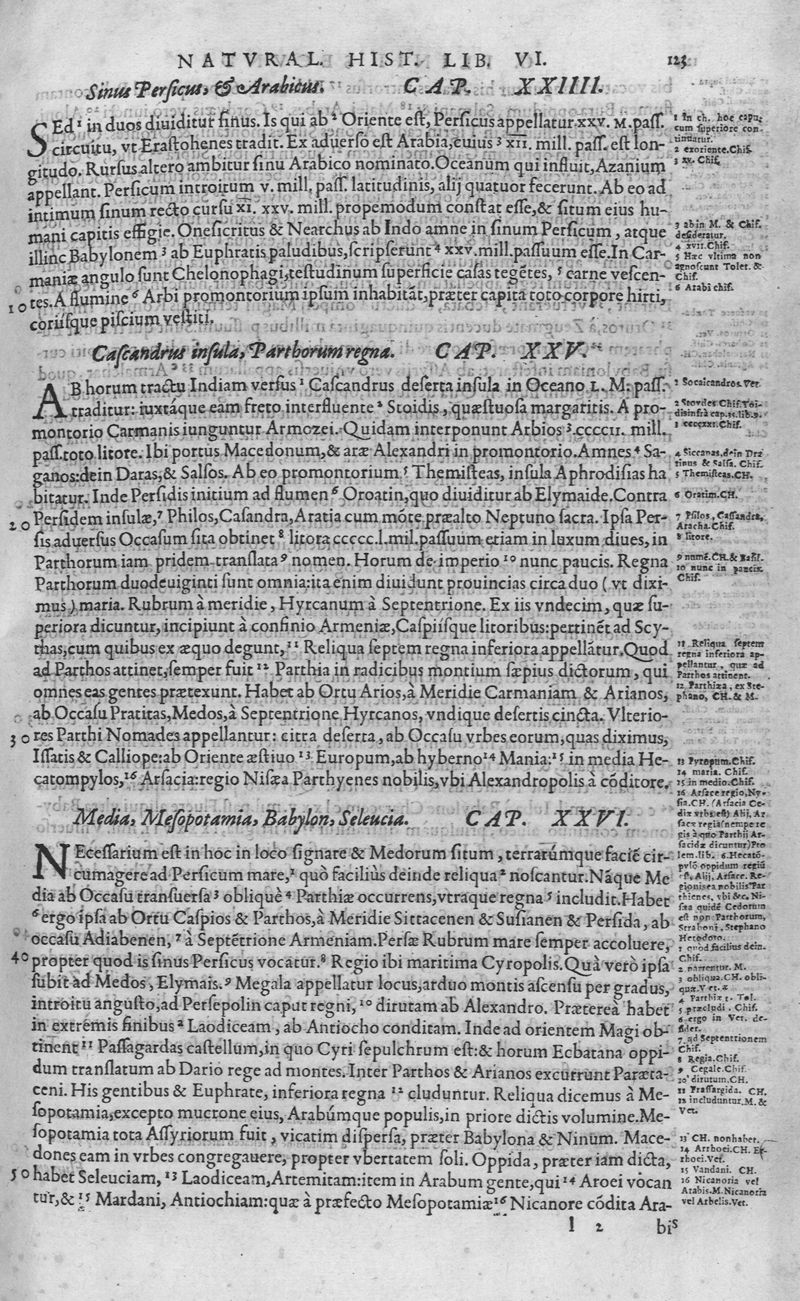 NATVRAL. HIST. LIB. VI. 123
Sinus Persicus, & Arabicus. CAP. XXIIII.
SEd¹ in duos diuiditur sinus. Is qui ab² Oriente est, Persicus appellatur xxv. M. pass.
circuitu, vt Erastohenes tradit. Ex aduerso est Arabia, cuius ³ XII. mill. pass. est lon-
gitudo. Rursus altero ambitur sinu Arabico nominato. Oceanum qui influit, Azanium
appellant. Persicum introitum v. mill. pass. latitudinis, alij quatuor fecerunt. Ab eo ad
intimum sinum recto cursu XI. xxv. mill. propemodum constat esse, & situm eius hu-
mani capitis effigie. Onesicritus & Nearchus ab Indo amne in sinum Persicum, atque
illinc Babylonem ³ ab Euphratis paludibus, scripserunt ⁴ xxv. mill. passuum esse. In Car-
maniæ angulo sunt Chelonophagi, testudinum superficie casas tegētes, ⁵ carne vescen-
10 tes. A flumine ⁶ Arbi promontorium ipsum inhabitāt, præter capita toto corpore hirti,
coriisque piscium vestiti.
1 In ch. hoc caput
cum superiore con-
tinuatur.
2 exoriente. Chif.
3 xv. Chif.
3 ab in M. & Chif.
desideratur.
4 xvii. Chif.
5 Hæc vltima non
agnoscunt Tolet. &
Chif.
6 Arabi chif.
Cascandrus insula, Parthorum regna. CAP. XXV.
AB horum tractu Indiam versus ¹ Cascandrus deserta insula in Oceano L. M. pass.
traditur: iuxtáque eam freto interfluente ² Stoidis, quæstuosa margaritis. A pro-
montorio Carmanis iunguntur Armozei. Quidam interponunt Arbios ³.ccccII. mill.
pass. toto litore. Ibi portus Macedonum, & aræ Alexandri in promontorio. Amnes ⁴ Sa-
ganos: dein Daras, & Salsos. Ab eo promontorium ⁵ Themisteas, insula Aphrodisias ha
bitatur. Inde Persidis initium ad flumen ⁶ Oroatin, quo diuiditur ab Elymaide. Contra
20 Persidem insulæ, ⁷ Philos, Casandra, Aratia cum mōte præalto Neptuno sacra. Ipsa Per-
sis aduersus Occasum sita obtinet ⁸ litora ccccc.l. mil. passuum etiam in luxum diues, in
Parthorum iam pridem translata ⁹ nomen. Horum de imperio ¹⁰ nunc paucis. Regna
Parthorum duodeuiginti sunt omnia: ita enim diuidunt prouincias circa duo ( vt dixi-
mus ) maria. Rubrum à meridie, Hyrcanum à Septentrione. Ex iis vndecim, quæ su-
periora dicuntur, incipiunt à confinio Armeniæ, Caspiisque litoribus: pertinēt ad Scy-
thas, cum quibus ex æquo degunt, ¹¹ Reliqua septem regna inferiora appellātur. Quod
ad Parthos attinet, semper fuit ¹² Parthia in radicibus montium sæpius dictorum, qui
omnes eas gentes prætexunt. Habet ab Ortu Arios, à Meridie Carmaniam & Arianos,
ab Occasu Pratitas, Medos, à Septentrione Hyrcanos, vndique desertis cincta. Vlterio-
30 res Parthi Nomades appellantur: citra deserta, ab Occasu vrbes eorum, quas diximus,
Issatis & Calliope: ab Oriente æstiuo ¹³ Europum, ab hyberno ¹⁴ Mania: ¹⁵ in media He-
catompylos, ¹⁶ Arsacia: regio Nisæa Parthyenes nobilis, vbi Alexandropolis à cōditore.
1 Socaicandros. Ver.
2 Stoydes Chif. Toi-
disinfrà cap.15.lib.9.
3 ccccxxi. Chif.
4 Siccanas, dein Dra
tinus & Salsa. Chif.
5 Themisteas. CH.
6 Oratim. CH.
7 Psilos, Cassandra,
Aracha. Chif.
8 litore.
10 nunc in paucis.
Chif.
11 Reliqua septem
regna inferiora ap-
pellantur, quæ ad
Parthos attinent.
12 Parthiæa, ex Ste-
phano, CH. & M.
13 Pyropum. Chif.
14 maria. Chif.
15 in medio. Chif.
16 Arsace regio, Ny-
sia. CH. (Arsacia Ce-
diæ vrbs est) Alij, Ar
sace regia, nempe re
gis à quo Parthij Ar-
sacidæ dicuntur) Pto
lem. lib. 6. Hecatō-
pylō oppidum regiū
est. Alij, Arsace. Re-
gionisea nobilis Par
thienes, vbi &c. Ni-
sea quidē Cedorum
est non Parthorum,
Straboni, Stephano
Herodoto.
Media, Mesopotamia, Babylon, Seleucia. CAP. XXVI.
NEcessarium est in hoc in loco signare & Medorum situm, terrarúmque faciē cir-
cumagere ad Persicum mare, ¹ quò faciliùs deinde reliqua ² noscantur. Nāque Me
dia ab Occasu transuersa ³ obliquè ⁴ Parthiæ occurrens, vtraque regna ⁵ includit. Habet
⁶ ergo ipsa ab Ortu Caspios & Parthos, à Meridie Sittacenen & Susianen & Persida, ab
occasu Adiabenen, ⁷ à Septētrione Armeniam. Persæ Rubrum mare semper accoluere,
40 propter quod is sinus Persicus vocatur. ⁸ Regio ibi maritima Cyropolis. Quà verò ipsa
subit ad Medos, Elymais. ⁹ Megala appellatur locus, arduo montis ascensu per gradus,
introitu angusto, ad Persepolin caput regni, ¹⁰ dirutam ab Alexandro. Præterea habet
in extremis finibus ² Laodiceam, ab Antiocho conditam. Inde ad orientem Magi ob-
tinent ¹¹ Passagardas castellum, in quo Cyri sepulchrum est: & horum Ecbatana oppi-
dum translatum ab Dario rege ad montes. Inter Parthos & Arianos excurrunt Paræta-
ceni. His gentibus & Euphrate, inferiora regna ¹² cluduntur. Reliqua dicemus à Me-
sopotamia, excepto mucrone eius, Arabúmque populis, in priore dictis volumine. Me-
sopotamia tota Assyriorum fuit, vicatim dispersa, præter Babylona & Ninum. Mace-
dones eam in vrbes congregauere, propter vbertatem soli. Oppida, præter iam dicta,
50 habet Seleuciam, ¹³ Laodiceam, Artemitam: item in Arabum gente, qui ¹⁴ Aroei vocan
tur, & ¹⁵ Mardani, Antiochiam: quæ à præfecto Mesopotamiæ ¹⁶ Nicanore cōdita Ara-
1 quod facilius dein.
Chif.
3 obliqua. CH. obli-
4 Parthiæ t. Tol.
5 præcludi. Chif.
6 ergo in Vet. de-
sider.
7 ad Septentrionem
Chif.
8 Regia. Chif.
9 Cegale. Chif.
10 dirutum. CH.
11 Frassargida. CH.
12 includuntur. M. &
Vet.
13 CH. non habet.
14 Arrhoei. CH. Er-
rhoei. Vet.
15 Vandani. CH.
16 Nicanoria vel
Arabis. M. Nicanoria
vel Arbelis. Vet.
l 2 bis